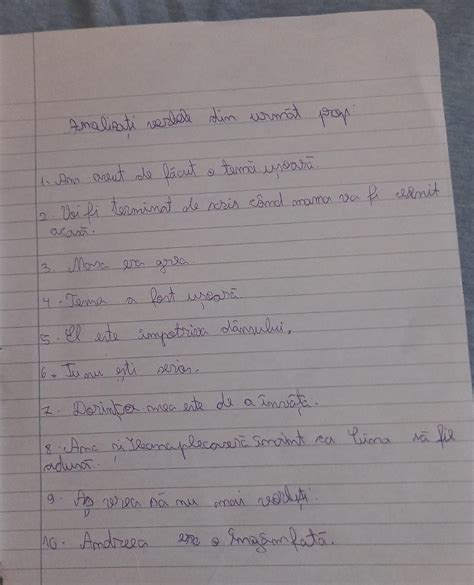 Analizați verbele din următ prop:
1. Am avut de făcut o temă ușoară.
2. Voi fi terminat de scris când mama va fi venit
acasă.
3. Masa era grea
4. Tema a fost ușoară
5. El este împotriva dânsului.
6. Tu nu ești serios.
7. Dorința mea este de a învăța.
8. Ana și Ileana plecaseră înainte ca Lina să fie
adusă.
9. Aș vrea să nu mai vorbești.
10. Andreea era o îngâmfată.